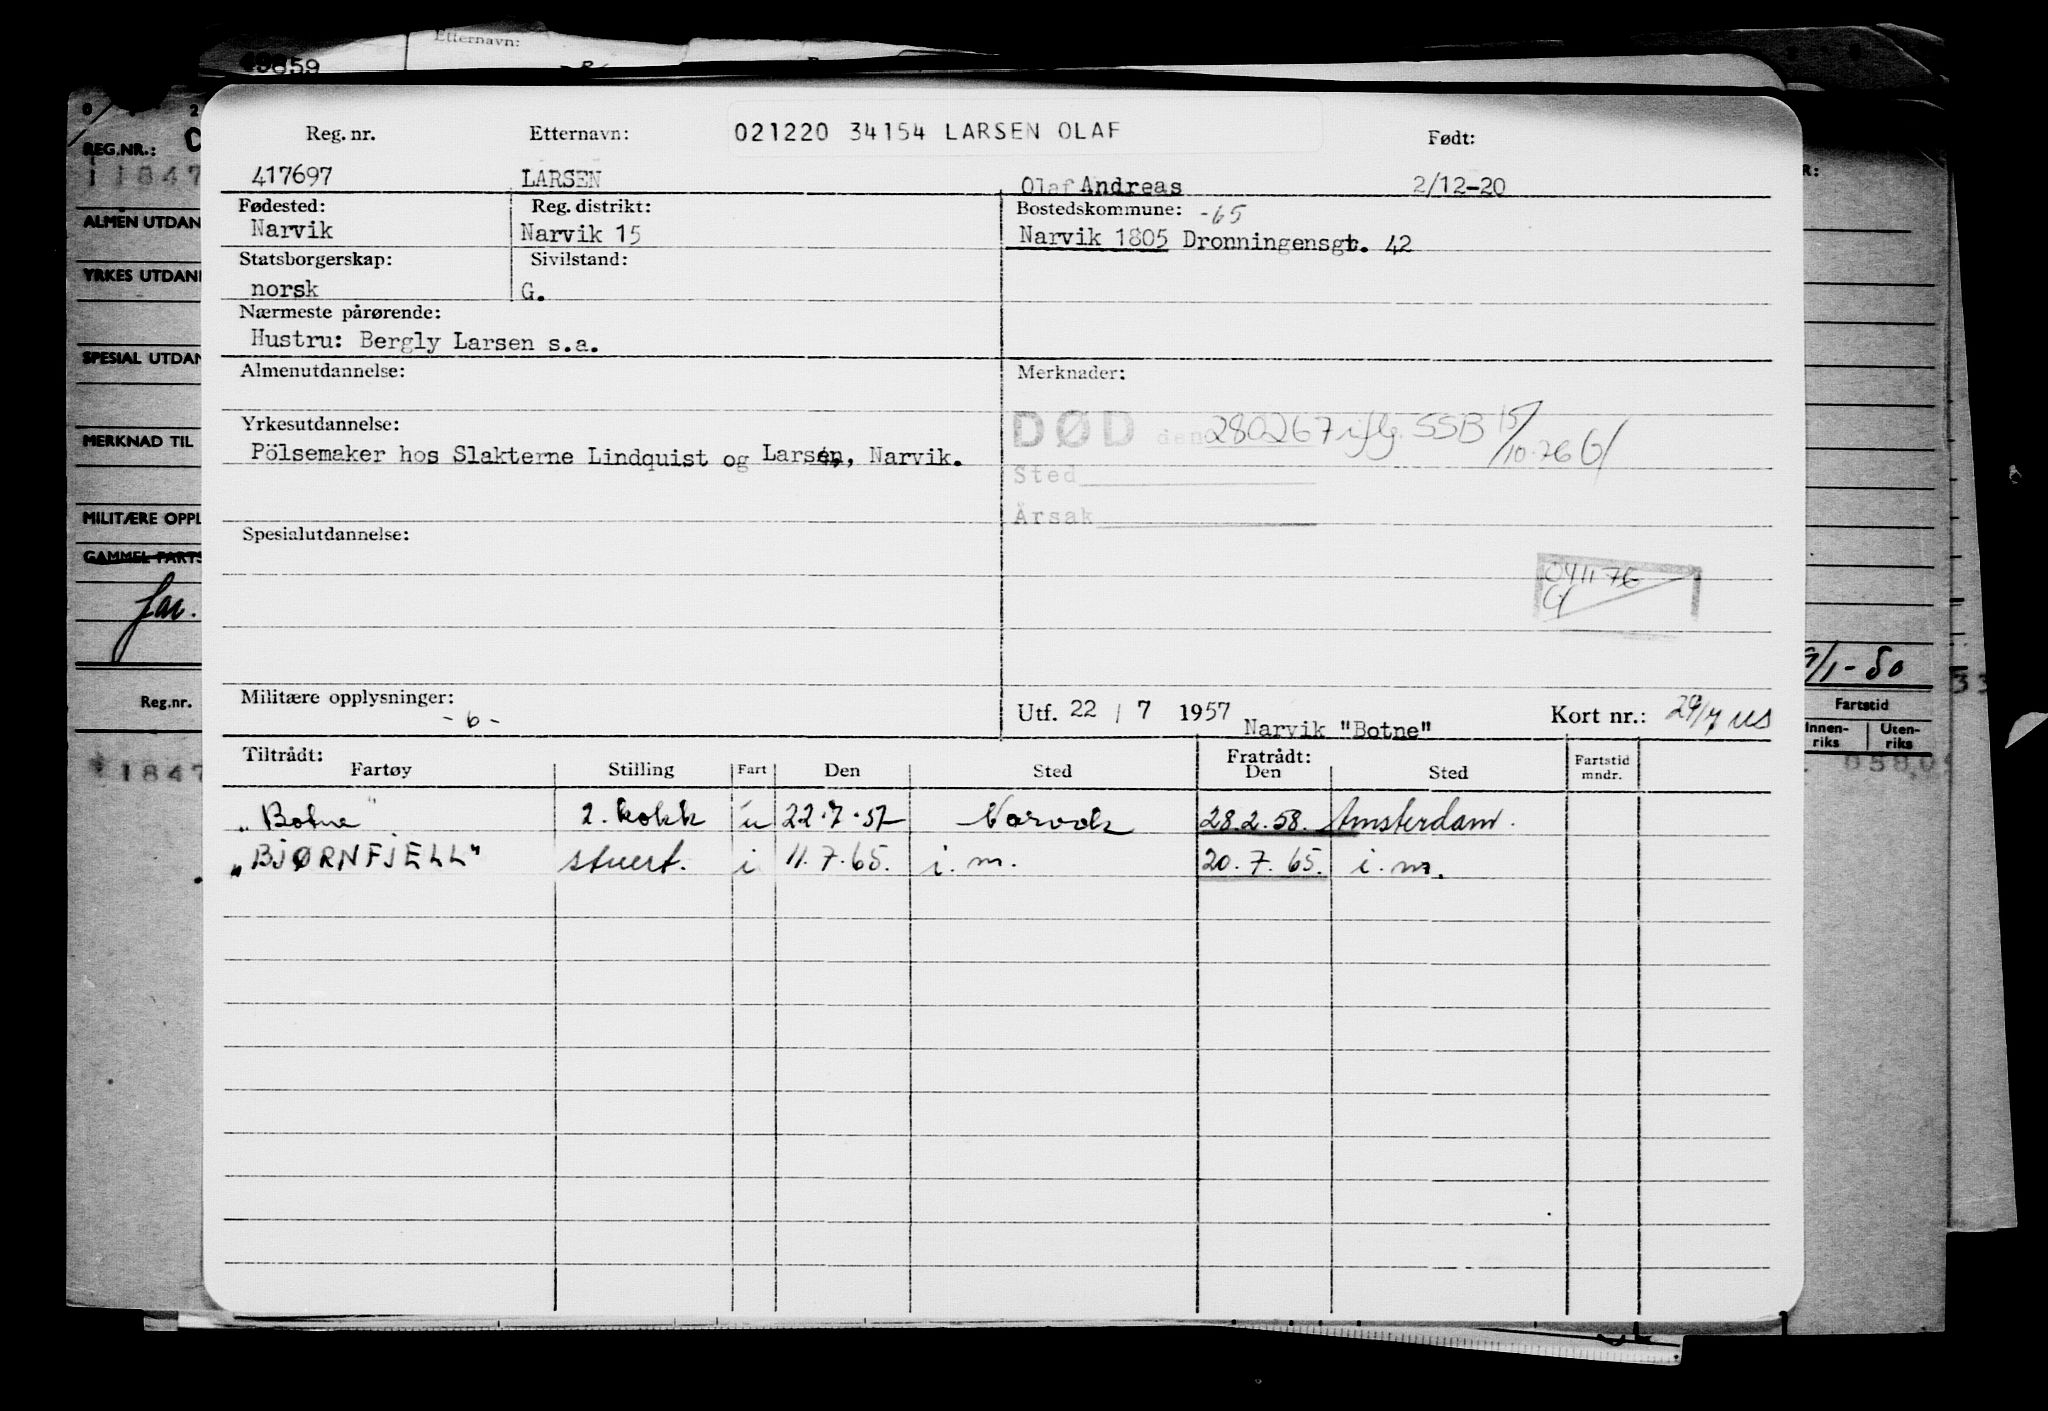 49859 Etternavn:
Reg. nr. Etternavn: 021220 34154 LARSEN OLAF Født:
417697 LARSEN Olaf Andreas 2/12-20
Fødested: Reg. distrikt: Bostedskommune: -65
Narvik Narvik 15 Narvik 1805 Dronningensgt. 42
Statsborgerskap: Sivilstand:
norsk G.
Nærmeste pårørende:
Hustru: Bergly Larsen s.a.
Almenutdannelse: Merknader:
Yrkesutdannelse: DØD den 280267 iflg. SSB 15/10.76
Pölsemaker hos Slakterne Lindquist og Larsen, Narvik.
Sted
Årsak
Spesialutdannelse:
041176
Militære opplysninger:
-6-
Utf. 22 / 7 1957 Narvik "Botne" Kort nr.: 29/7 us
Tiltrådt: Fratrådt:
Fartøy Stilling Fart Den Sted Den Sted Fartstid mndr.
"Botne" 2. kokk u 22.7.57 Narvik 28.2.58. Amsterdam.
"BJØRNFJELL" stuert. i 11.7.65. i.m. 20.7.65. i.m.
REG.NR.:
11847
ALMEN UTDAN
YRKES UTDAN
SPESIAL UTDAN
MERKNAD TIL
MILITÆRE OPPL
GAMMEL FARTS
Reg.nr.
1847
R:
/1-50
33
Fartstid
Innen-riks Uten-riks